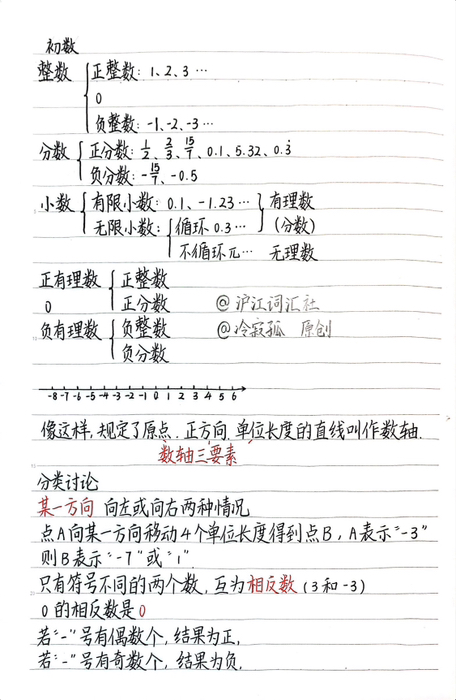 初数
整数 正整数: 1、2、3…
0
负整数: -1、-2、-3…
分数 正分数: 1/2、2/3、15/7、0.1、5.32、0.3̇
负分数: -15/7、-0.5
小数 有限小数: 0.1、-1.23… 有理数
无限小数: 循环 0.3… (分数)
不循环 π… 无理数
正有理数 正整数
0 正分数 @沪江词汇社
负有理数 负整数 @冷寂孤 原创
负分数
-8 -7 -6 -5 -4 -3 -2 -1 0 1 2 3 4 5 6
像这样,规定了原点.正方向.单位长度的直线叫作数轴.
数轴三要素
分类讨论
某一方向 向左或向右两种情况
点A向某一方向移动4个单位长度得到点B, A表示"-3"
则B表示"-7"或"1".
只有符号不同的两个数,互为相反数(3和-3)
0的相反数是0
若"-"号有偶数个,结果为正.
若"-"号有奇数个,结果为负.